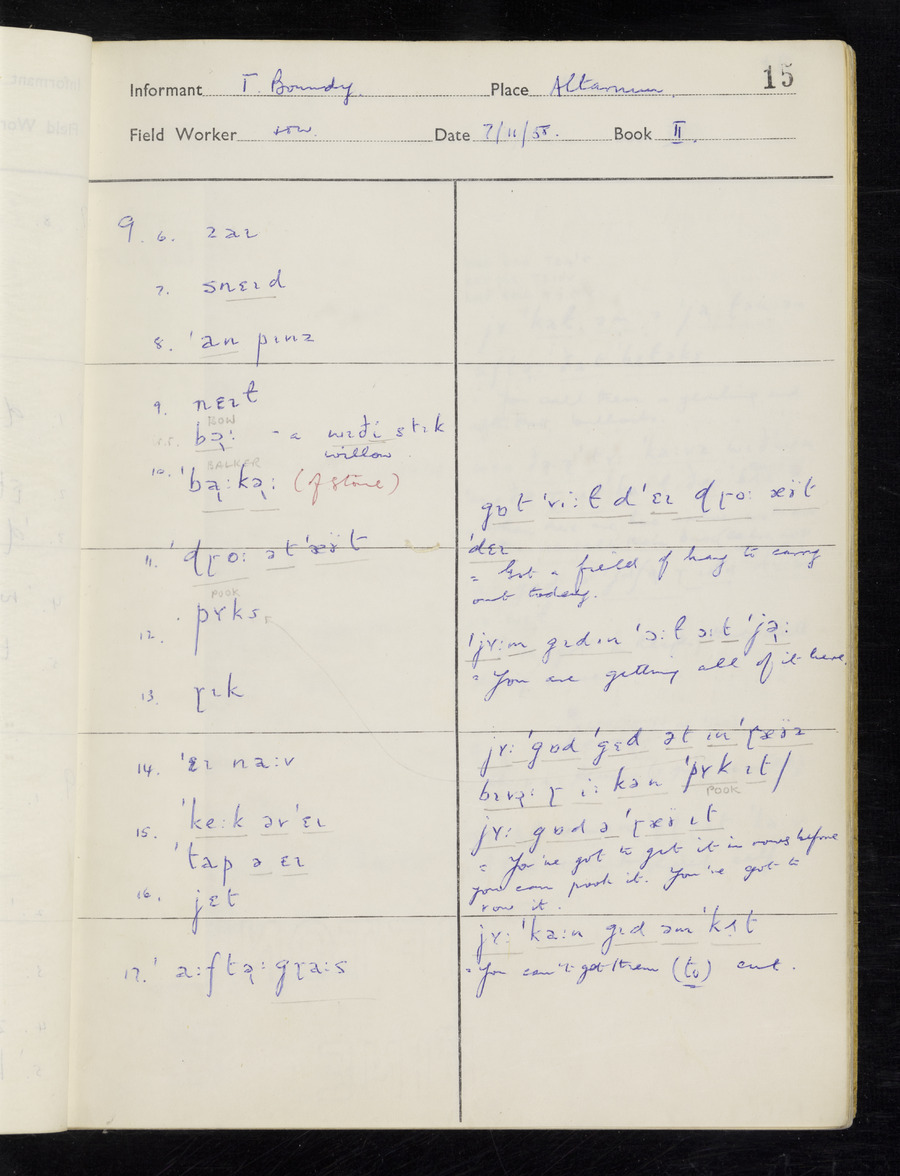 15
Informant T. Boundy. Place Altarnun.
Field Worker Date 7/11/55. Book II.
9. 6. zaɪ
7. snɛɪd
8. ˈan pɪnz
9. nɛɪt
BOW
bə̢ː - a wɪði stɪk
willow.
BALKER
10. ˈba̢ːkə̢ː (of stone)
11. ˈdɽoː ət ˈæÿt
POOK
12. pʏks
13. ɽɪk
14. ˈɛɪ naːv
15. ˈkeːk əv ˈɛɪ
ˈtap ə ɛɪ
16. jɛt
17. ˈaːftə̢ː gɽaːs
gɒt ˈviːɫ d ˈɛɪ dɽoː æÿt
ˈdɛɪ
= Got a field of hay to carry
out today.
ˈjʏːm gɪdɪn ˈɔːɫ ɔːt ˈjə̢ː
= You are getting all of it here.
jʏː ˈgɒd ˈgɛd ət ɪn ˈɽæÿz
bɪvə̢ː ɽ iː kən ˈpʏk ɪt /
POOK
jʏː gɒd ə ˈɽæÿ ɪt
= You've got to get it in rows before
you can pook it. You've got to
row it.
jʏː ˈkaːn gɪd əm ˈkɪt
= You can't get them (to) cut.